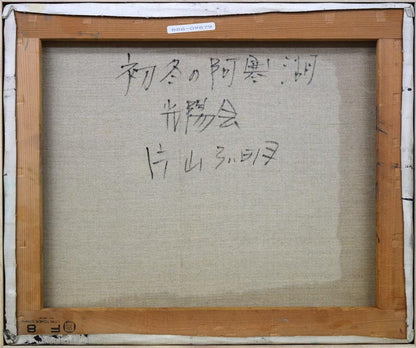 初冬の阿寒湖
光陽会
片山弘明
F8